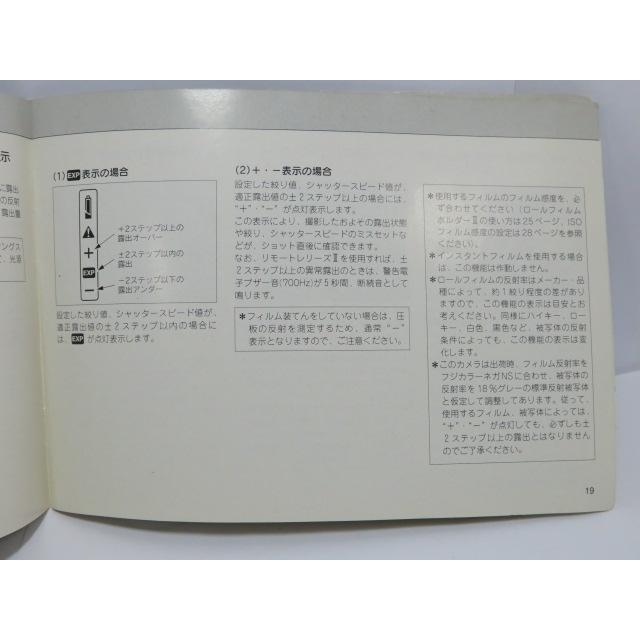 示
に露出
の反射
露出量
ングス
、光源
(1)EXP表示の場合
+2ステップ以上の
露出オーバー
+
±2ステップ以内の
露出
EXP
−2ステップ以下の
露出アンダー
−
設定した絞り値、シャッタースピード値が、
適正露出値の±2ステップ以内の場合に
は、EXPが点灯表示します。
(2)+・−表示の場合
設定した絞り値、シャッタースピード値が、
適正露出値の±2ステップ以上の場合には、
“+”・“−”が点灯表示します。
この表示により、撮影したおよその露出状態
や絞り、シャッタースピードのミスセットな
どが、ショット直後に確認できます。
なお、リモートレリーズⅡを使用すれば、±
2ステップ以上の異常露出のときは、警告電
子ブザー音(700Hz)が5秒間、断続音として
鳴ります。
＊フィルム装てんをしていない場合は、圧
板の反射を測定するため、通常“−”
表示となりますので、ご注意ください。
＊使用するフィルムのフィルム感度を、必
ず合わせてください(ロールフィルム
ホルダーⅡの使い方は25ページ、ISO
フィルム感度の設定は28ページを参照
ください)。
＊インスタントフィルムを使用する場合
は、この機能は作動しません。
＊ロールフィルムの反射率はメーカー・品
種によって、約1絞り程度の差があり
ますので、この機能の表示は目安とお
考えください。同様にハイキー、ロー
キー、白色、黒色など、被写体の反射
条件によっても、この機能の表示は変
化します。
＊このカメラは出荷時、フィルム反射率を
フジカラーネガNSに合わせ、被写体の
反射率を18%グレーの標準反射被写体
と仮定して調整してあります。従って、
使用するフィルム、被写体によっては、
“+”・“−”が点灯しても、必ずしも±
2ステップ以上の露出とはなりません
のでご了承ください。
19